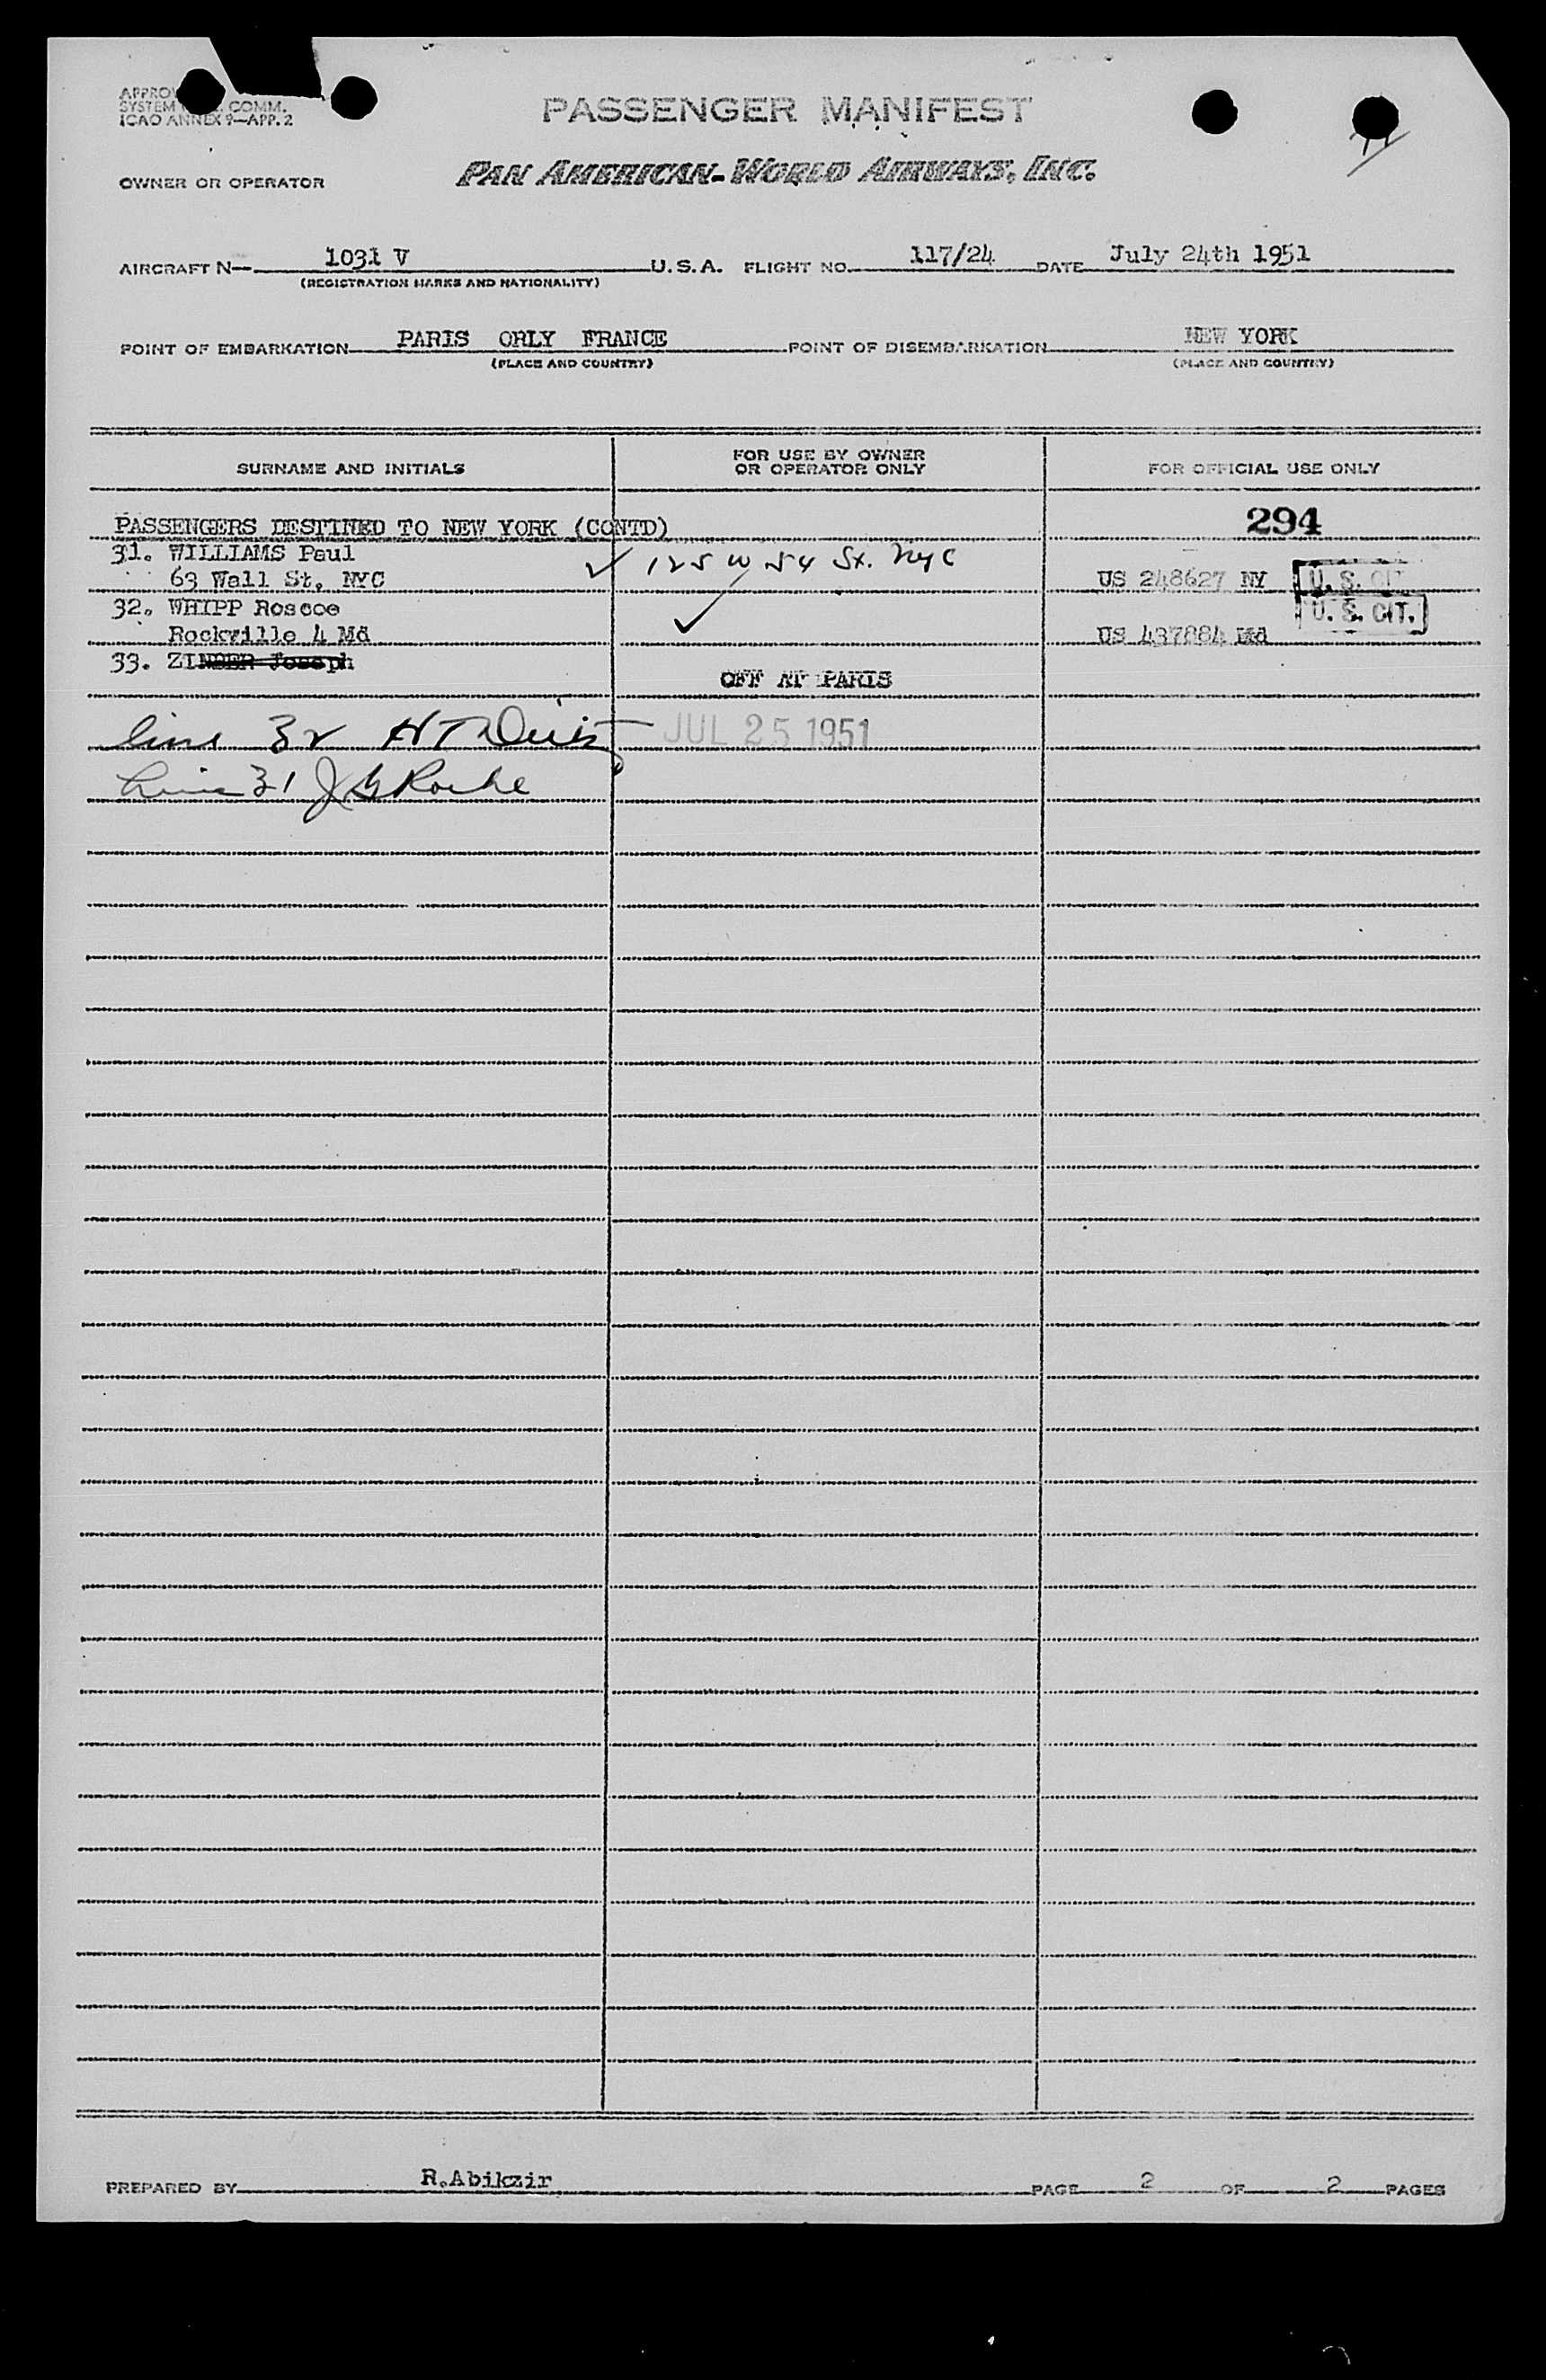 PASSENGER MANIFEST
SYSTEM COMM.
ICAO ANNEX 9—APP. 2
OWNER OR OPERATOR PAN AMERICAN-WORLD AIRWAYS, INC.
AIRCRAFT N— 1031 V U. S. A. FLIGHT NO. 117/24 DATE July 24th 1951
(REGISTRATION MARKS AND NATIONALITY)
POINT OF EMBARKATION PARIS ORLY FRANCE POINT OF DISEMBARKATION NEW YORK
(PLACE AND COUNTRY) (PLACE AND COUNTRY)
SURNAME AND INITIALS
FOR USE BY OWNER
OR OPERATOR ONLY
FOR OFFICIAL USE ONLY
PASSENGERS DESTINED TO NEW YORK (CONTD) 294
31. WILLIAMS Paul ✓ 125 W 54 St. NYC
63 Wall St, NYC US 248627 NY U. S. CIT
32. WHIPP Roscoe ✓ U. S. CIT.
Rockville 4 Md US 437884 Md
33. ZINBER Joseph OFF AT PARIS
line 32 JUL 25 1951
Line 31 J G Roche
PREPARED BY R.Abikzir PAGE 2 OF 2 PAGES